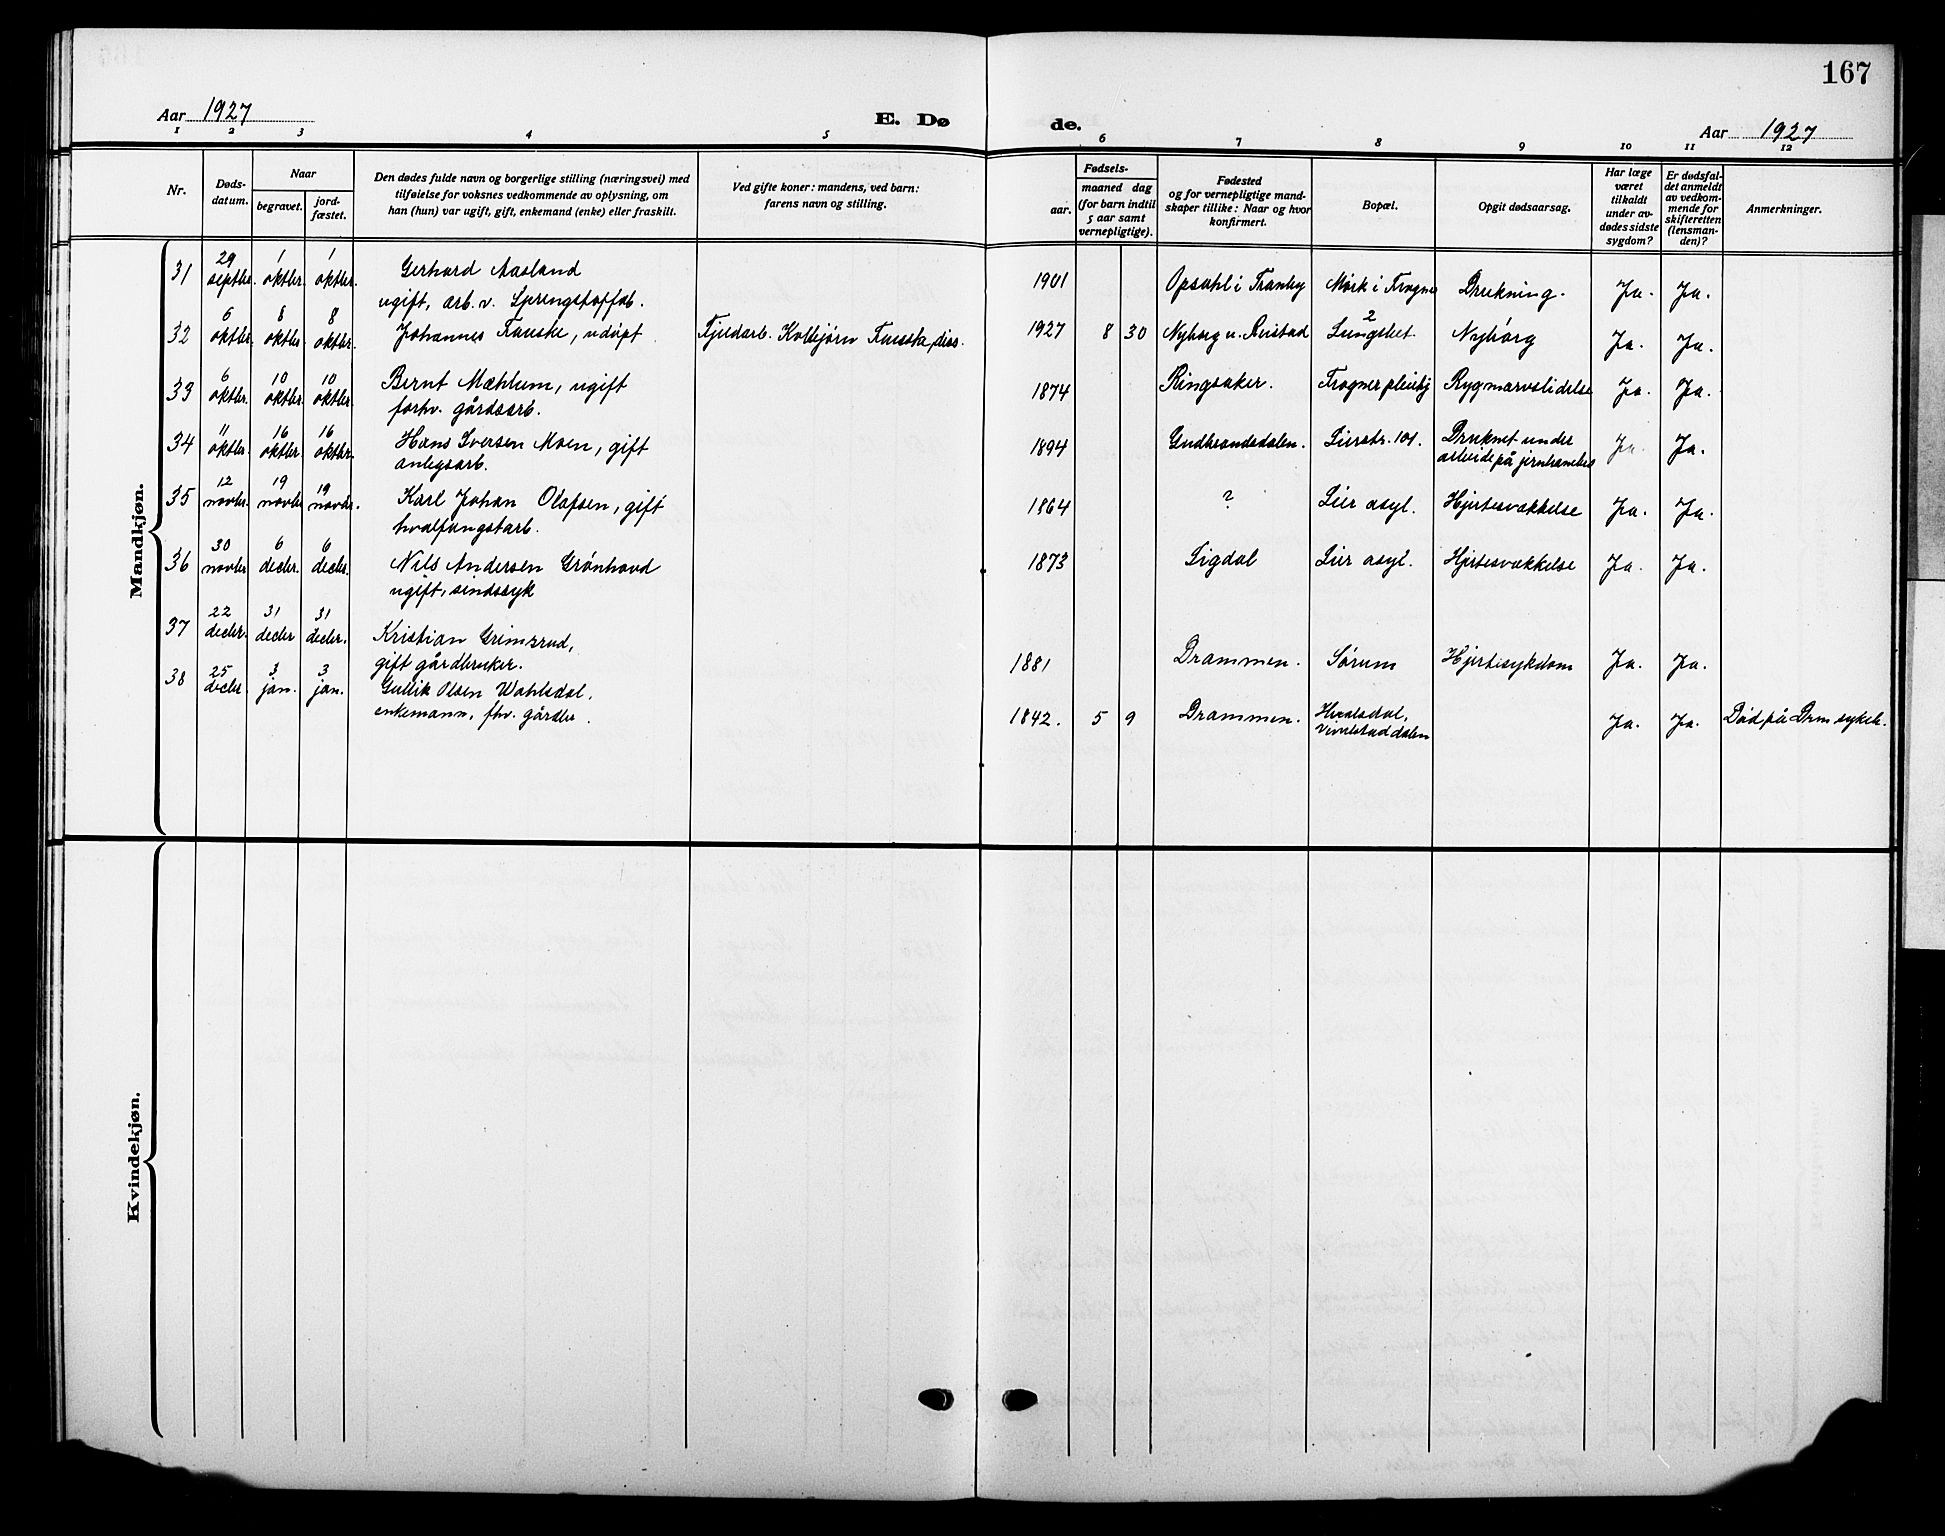 167
Aar 1927
E. Dø
de.
Aar 1927
1 2 3 4 5 6 7 8 9 10 11 12
Nr.
Døds-
datum.
Naar
begravet.
jord-
fæstet.
Den dødes fulde navn og borgerlige stilling (næringsvei) med
tilføielse for voksnes vedkommende av oplysning, om
han (hun) var ugift, gift, enkemand (enke) eller fraskilt.
Ved gifte koner: mandens, ved barn:
farens navn og stilling.
Fødsels-
aar.
maaned dag
(for barn indtil
5 aar samt
vernepligtige).
Fødested
og for vernepligtige mand-
skaper tillike: Naar og hvor
konfirmert.
Bopæl.
Opgit dødsaarsag.
Har læge
været
tilkaldt
under av-
dødes sidste
sygdom?
Er dødsfal-
det anmeldt
av vedkom-
mende for
skifteretten
(lensman-
den)?
Anmerkninger.
Mandkjøn.
31 29 septbr. 1 oktbr. 1 oktbr. Gerhard Aasland 1901 Opsahl i Tranby Mørk i Frogner Drukning. Ja. Ja.
ugift, arb. v. Sprengstoffab.
32 6 oktbr. 8 oktbr. 8 oktbr. Johannes Fauske, udøpt Fjeldarb. Kolbjørn Fauske, diss. 1927 8 30 Nyborg u. Reistad Nyborg Ja. Ja.
33 6 oktbr. 10 oktbr. 10 oktbr. Bernt Mæhlum, ugift 1874 Ringsaker. Frogner pleiehj Rygmarvslidelse Ja. Ja.
forhv. gårdsarb.
34 11 oktbr. 16 oktbr. 16 oktbr. Hans Iversen Moen, gift 1894 Gudbrandsdalen. Lierstr. 101. Druknet under Ja. Ja.
anlegsarb. arbeide på
35 12 novbr. 19 novbr. 19 novbr. Karl Johan Olafsen, gift 1864 ? Lier asyl. Hjertesvækkelse Ja. Ja.
hvalfangstarb.
36 30 novbr. 6 decbr. 6 decbr. Nils Andersen Grønhovd 1873 Sigdal Lier asyl. Hjertesvækkelse Ja. Ja.
ugift, sindssyk
37 22 decbr. 31 decbr 31 decbr. Kristian Grimsrud,
gift gårdbruker. 1881 Drammen. Sørum Hjertesykdom Ja. Ja.
38 25 decbr. 3 jan. 3 jan. Gullik Olsen Wahlsdal,
enkemann, fhv. gårdbr. 1842. 5 9 Drammen. Hvalsdal, Ja. Ja. Død på Drm sykeh.
Kvindekjøn.